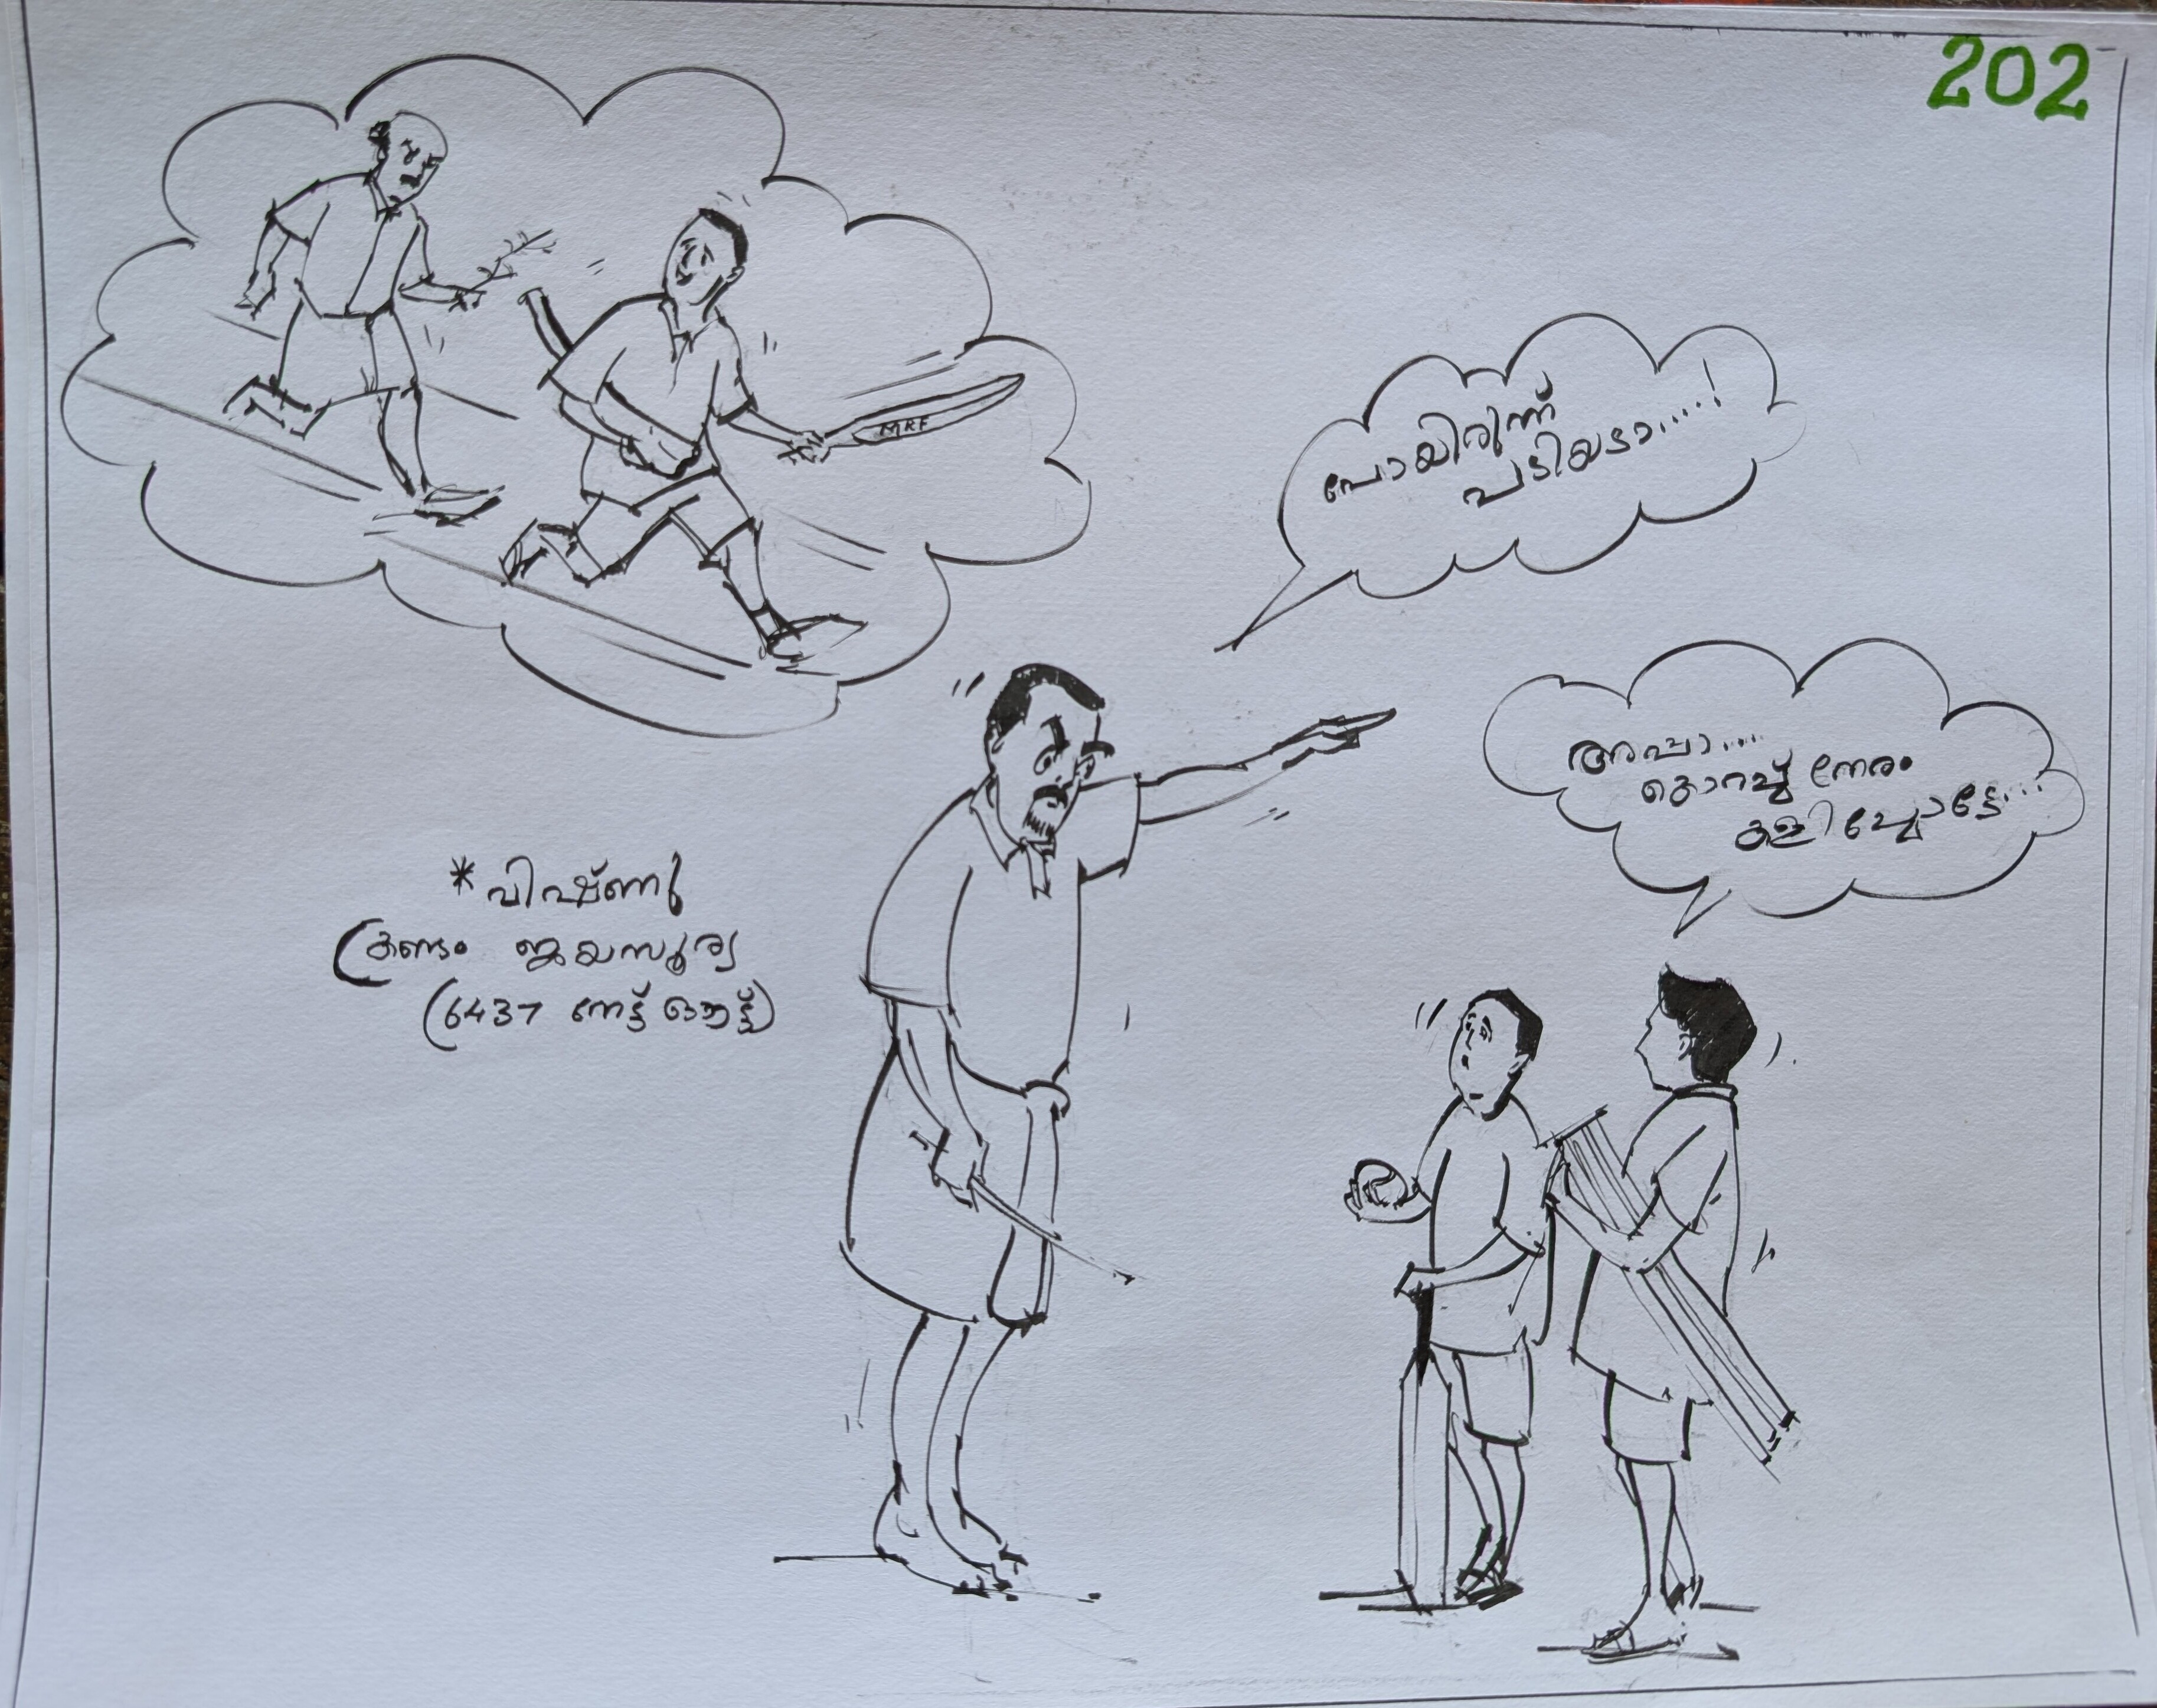 202
MRF
പോയിരുന്ന്
പടിയടാ....!
അപ്പാ....
കൊറച്ച് നേരം
കളിച്ചോട്ടേ....
*വിഷ്ണു
(കണ്ടം ജയസൂര്യ
(6437 നേട്ട് ഔട്ട്)